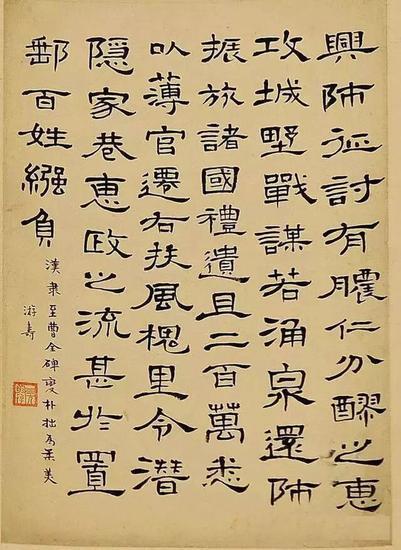 興師征討有膿仁分醪之惠
攻城野戰謀若涌泉還師
振旅諸國禮遺且二百萬悉
以薄官遷右扶風槐里令潛
隱家巷惠政之流甚於置
郵百姓繈負
漢隶至曹全碑變朴拙為柔美
游壽